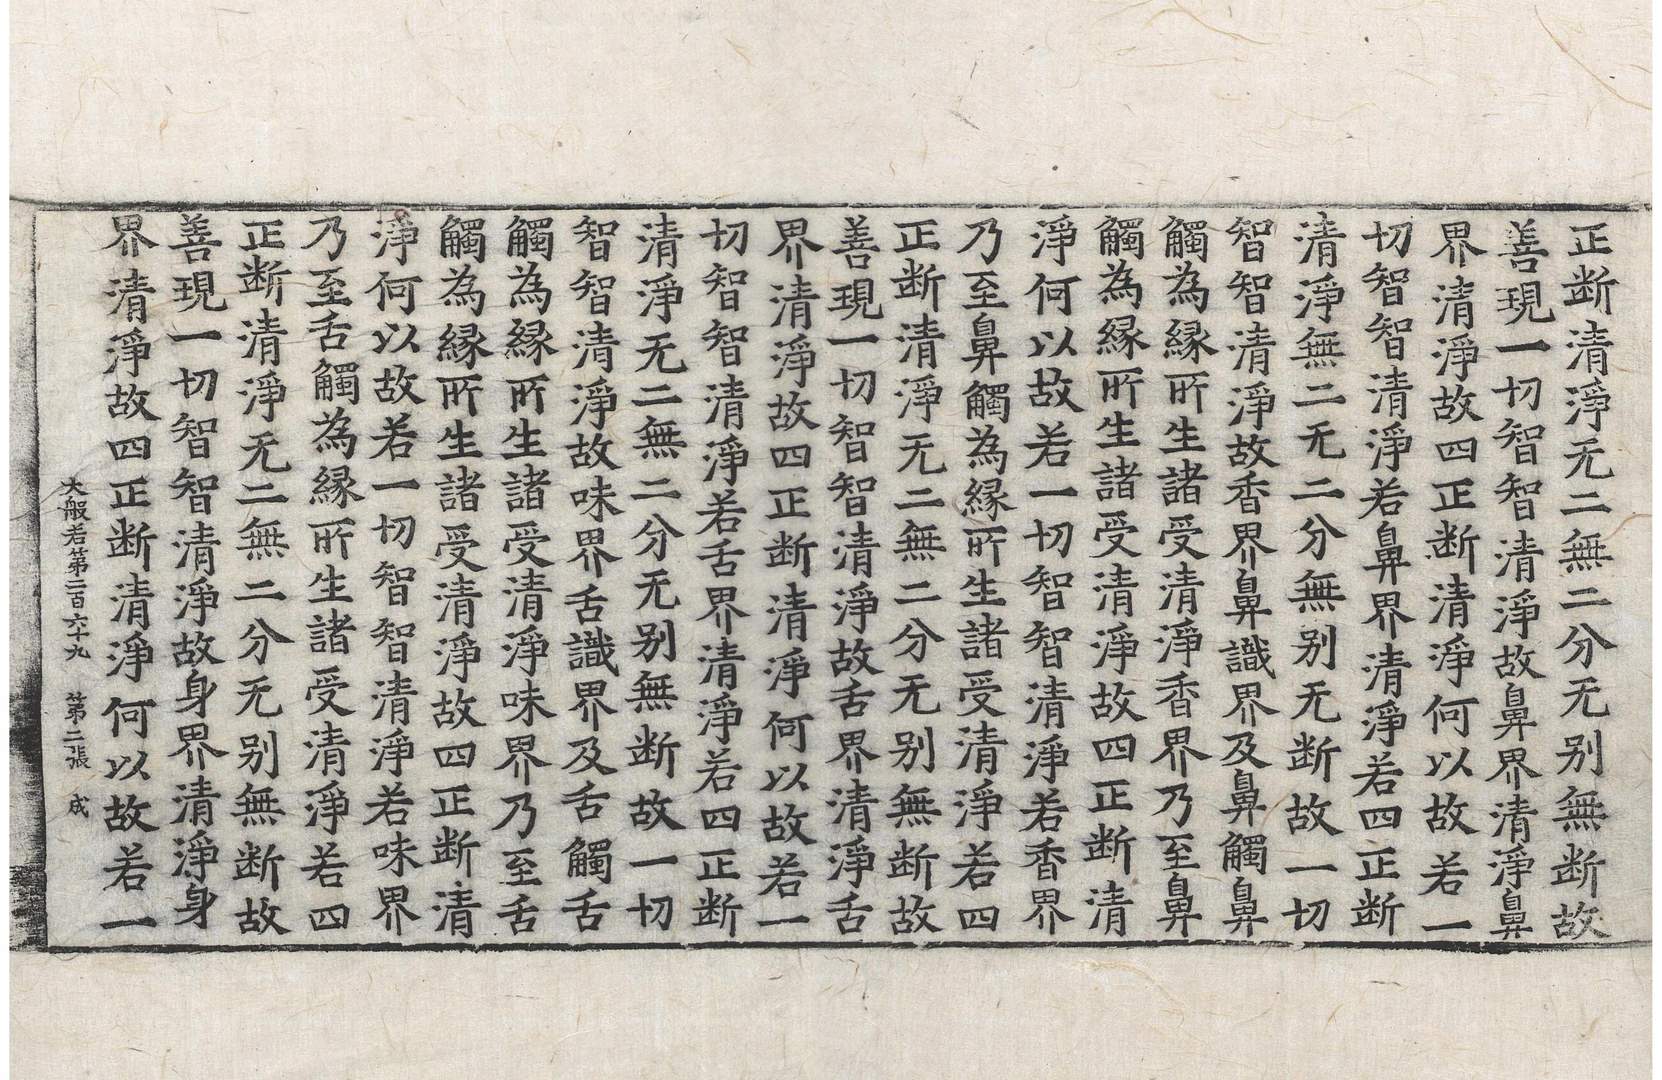 正断清淨无二無二分无别無断故
善現一切智智清淨故鼻界清淨鼻
界清淨故四正断清淨何以故若一
切智智清淨若鼻界清淨若四正断
清淨無二无二分無别无断故一切
智智清淨故香界鼻識界及鼻觸鼻
觸為縁所生諸受清淨香界乃至鼻
觸為縁所生諸受清淨故四正断清
淨何以故若一切智智清淨若香界
乃至鼻觸為縁所生諸受清淨若四
正断清淨无二無二分无别無断故
善現一切智智清淨故舌界清淨舌
界清淨故四正断清淨何以故若一
切智智清淨若舌界清淨若四正断
清淨无二無二分无别無断故一切
智智清淨故味界舌識界及舌觸舌
觸為縁所生諸受清淨味界乃至舌
觸為縁所生諸受清淨故四正断清
淨何以故若一切智智清淨若味界
乃至舌觸為縁所生諸受清淨若四
正断清淨无二無二分无别無断故
善現一切智智清淨故身界清淨身
界清淨故四正断清淨何以故若一
大般若第二百六十九 第二張 成